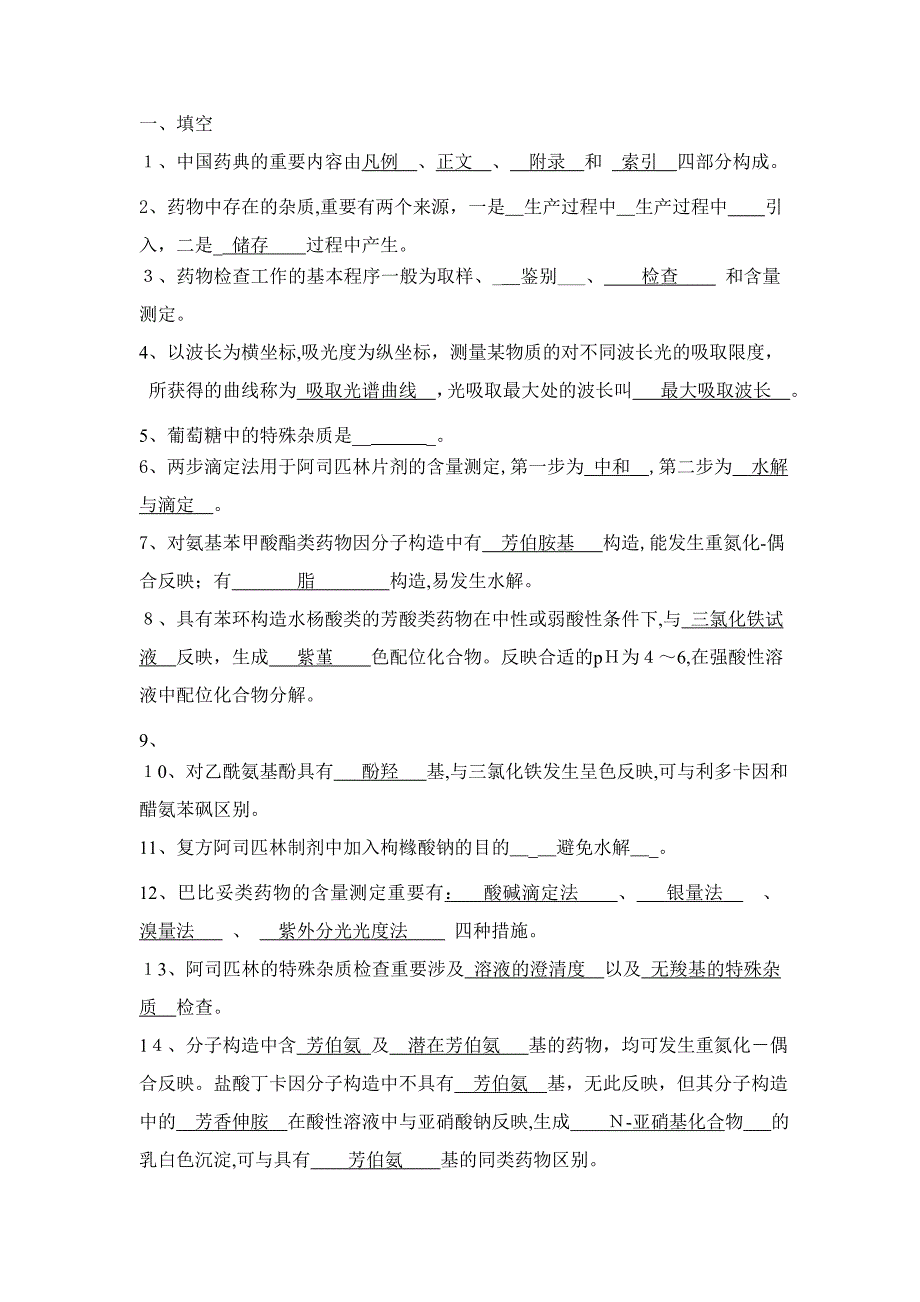 一、填空
１、中国药典的重要内容由凡例　、正文　、　附录　和　索引　四部分构成。
2、药物中存在的杂质,重要有两个来源，一是__生产过程中__生产过程中____引
入，二是_ 储存____过程中产生。
３、药物检查工作的基本程序一般为取样、___鉴别___、____检查____ 和含量
测定。
4、以波长为横坐标,吸光度为纵坐标，测量某物质的对不同波长光的吸取限度，
所获得的曲线称为 吸取光谱曲线　,光吸取最大处的波长叫　 最大吸取波长　。
5、葡萄糖中的特殊杂质是__ ______ _。
6、两步滴定法用于阿司匹林片剂的含量测定,第一步为 中和　,第二步为　水解
与滴定　。
7、对氨基苯甲酸酯类药物因分子构造中有　芳伯胺基　 构造,能发生重氮化-偶
合反映；有　　　 脂　　　　构造,易发生水解。
８、具有苯环构造水杨酸类的芳酸类药物在中性或弱酸性条件下,与 三氯化铁试
液　反映，生成　 紫堇　　色配位化合物。反映合适的pＨ为４～6,在强酸性溶
液中配位化合物分解。
9、
１0、对乙酰氨基酚具有　 酚羟　 基,与三氯化铁发生呈色反映,可与利多卡因和
醋氨苯砜区别。
11、复方阿司匹林制剂中加入枸橼酸钠的目的__ _ __避免水解__ _。
12、巴比妥类药物的含量测定重要有：　酸碱滴定法　　、　 银量法　　、
溴量法　 、　紫外分光光度法　　 四种措施。
１3、阿司匹林的特殊杂质检查重要涉及 溶液的澄清度　以及 无羧基的特殊杂
质　检查。
1４、分子构造中含 芳伯氨 及　潜在芳伯氨　 基的药物，均可发生重氮化－偶
合反映。盐酸丁卡因分子构造中不具有　芳伯氨　基，无此反映，但其分子构造
中的　芳香伸胺　在酸性溶液中与亚硝酸钠反映,生成　　Ｎ-亚硝基化合物___ 的
乳白色沉淀,可与具有　　芳伯氨　　基的同类药物区别。